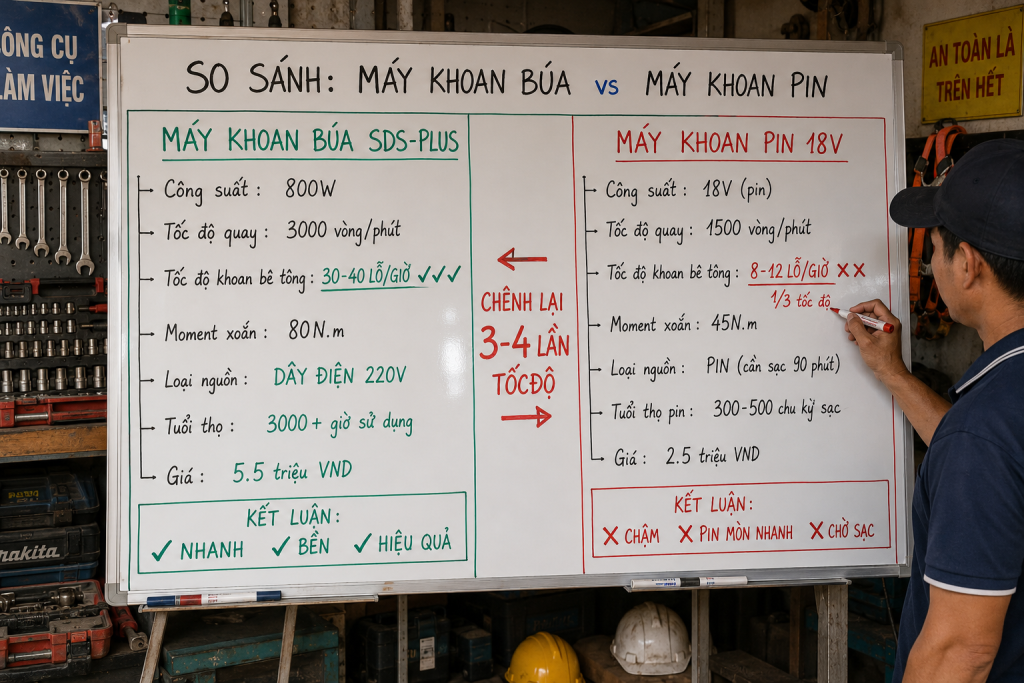 ÔNG CỤ
LÀM VIỆC
AN TOÀN LÀ
TRÊN HẾT
SO SÁNH: MÁY KHOAN BÚA vs MÁY KHOAN PIN
MÁY KHOAN BÚA SDS-PLUS
Công suất: 800W
Tốc độ quay: 3000 vòng/phút
Tốc độ khoan bê tông: 30-40 LỖ/GIỜ ✓✓✓
Moment xoắn: 80N.m
Loại nguồn: DÂY ĐIỆN 220V
Tuổi thọ: 3000+ giờ sử dụng
Giá: 5.5 triệu VND
KẾT LUẬN:
✓ NHANH ✓ BỀN ✓ HIỆU QUẢ
←
CHÊNH LẠI
3-4 LẦN
TỐCĐỘ
→
MÁY KHOAN PIN 18V
Công suất: 18V (pin)
Tốc độ quay: 1500 vòng/phút
Tốc độ khoan bê tông: 8-12 LỖ/GIỜ ✗✗
1/3 tốc độ
Moment xoắn: 45N.m
Loại nguồn: PIN (cần sạc 90 phút)
Tuổi thọ pin: 300-500 chu kỳ sạc
Giá: 2.5 triệu VND
KẾT LUẬN:
✗ CHẬM ✗ PIN MÒN NHANH ✗ CHỜ SẠC
makita